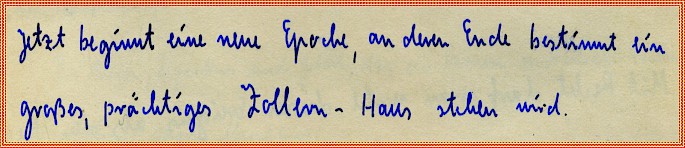 Jetzt beginnt eine neue Epoche, an deren Ende bestimmt ein
großes, prächtiges Zollern-Haus stehen wird.